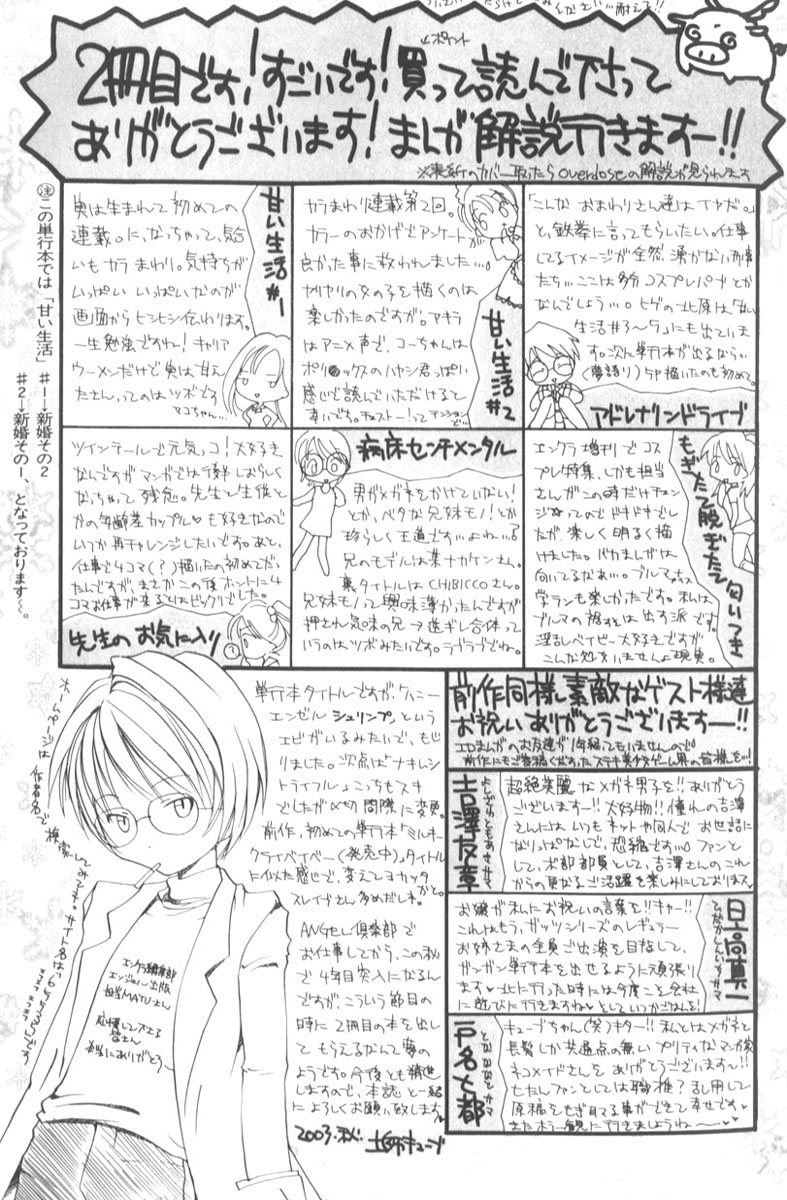 2冊目です!すごいです!買って読んで下さって
ポイント
ありがとうございます!まんが解説行きますー!!
※表紙のカバー取ったらoverdoseの解説が見られます
㊟この単行本では「甘い生活」 #1→新婚その2
#2→新婚その1、となっております〜。
甘い生活#1
実は生まれて初めての
連載。に、なっちゃって、気合
いもカラまわり。気持ちが
いっぱい いっぱいなのが
画面からヒシヒシ伝わります。
一生勉強ですね!キャリア
ウーメンだけで実は甘え
たさん。ってのはツボです
マコちゃん…
甘い生活#2
カラまわり連載第2回。
カラーのおかげでアンケートが
良かった事に救われました…。
ヤリヤリの女の子を描くのは
楽しかったのですが。アキラ
はアニメ声で、コーちゃんは
感じで読んでいただけると
幸いです。
アドレナリンドライブ
「こんな おまわりさん達はイヤだ。」
と、鉄拳に言ってもらいたい。仕事
してるイメージが全然、湧かない刑事
たち…ここは多分コスプレパブとか
なんでしょう…。ヒゲの北原は「甘い
生活#3〜5」にも出ていま
す。次に単行本が出るなら…
(夢語り)5P描いたのも初めて。
先生のお気に入り
ツインテールで元気っコ!大好き
なんですがマンガでは
なっちゃって残念。先生と生徒と
かの年齢差カップル♥も好きなので
いつか再チャレンジしたいです。あと、
仕事で4コマ(?)描いたの初めてだっ
たんですが、まさかこの後ホントに4
コマお仕事が来るとはビックリでした。
病床センチメンタル
男がメガネをかけていない!
とか、ベタな兄妹モノ!とか
珍らしく王道です…よね…?
兄のモデルは某ナカケンさん。
裏タイトルはCHIBICCOさん。
兄妹モノって興味薄かったんですが
押され気味の兄→逆ギレ合体って
いうのはツボみたいです。ラブラブでね。
もぎたて脱ぎたて匂いつき
エンクラ増刊でコス
プレ特集、しかも担当
さんがこの時だけチェン
ジってのでドキドキでし
たが、楽しく明るく描
けました。バカまんがは
向いてるなぁ…。ブルマ
学ランも楽しかったです。私は
ブルマの裾は出す派です。
淫乱ベイビー大好きですが
こんな処、いませんよ現実。
単行本タイトルですが、ハニー
エンゼルシュリンプ。という
エビがいるみたいで、もじ
りました。次点は「ナキムシ
トライフル」こっちもスキ
でしたが〆切間際に変更。
前作、初めての単行本「ミルキー
クライベイベー(発売中)」タイトル
に似た感じで、変えてヨカッタ
かと。
スレイブさん多めだしネ。
ANGEL倶楽部で
お仕事してから、この秋
で4年目突入になるん
ですが、こういう節目の
時に2冊目の本を出し
てもらえるなんて夢の
ようです。今後とも精進
しますので、本誌と一緒
によろしくお願い致します。
2003.秋.
ホームページは作者名で検索してみて下さい。
エンクラ編集部
エンジェル出版
担当MAYUさん
応援して下さる
皆さん
本当にありがとう〜
前作同様、素敵なゲスト様達
お祝いありがとうございますー!!
吉澤友章
よしざわともあきサマ
超絶美麗なメガネ男子を!!ありがとう
ございますー!!大好物!!憧れの吉澤
さんにはいつもネットや同人でお世話に
なりっぱなしで、恐縮です…ファン
として、吉澤さんのこれ
からの更なるご活躍を楽しみにしております
日高真一
お嬢が私にお祝いの言葉を!!キャー!!
これはもう、ガッツシリーズのレギュラー
お姉さまの全員ご出演を目指して、
ガンガン単行本を出せるように頑張り
ます♥北に行った時には今度こそ会社
に遊びに行きますね
戸名七都
キューブちゃん(笑)キター!!私とはメガネと
長髪しか共通点の無いプリティなマンガ家
ネコメイドさんをありがとうございますー!!
もたしファンとしては職権?乱用して
原稿をもぎ取る事ができて幸せです♥
またホラー観に行きましょうね〜